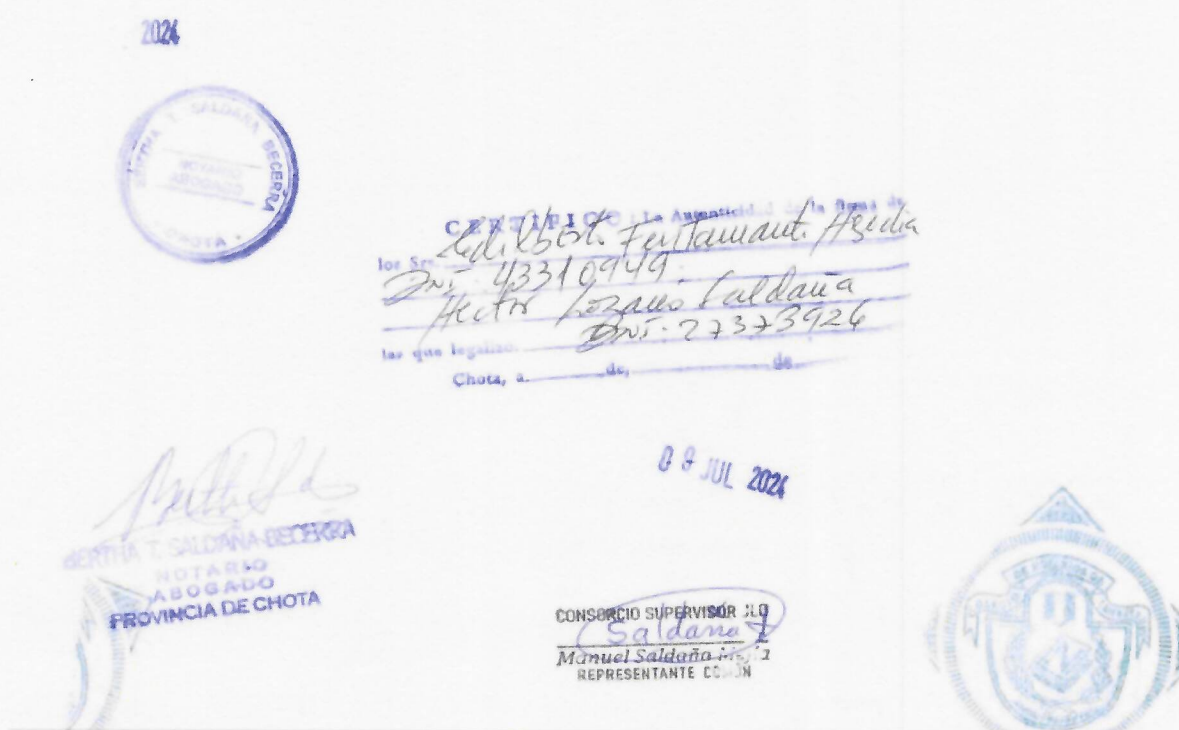 2024
BERTHA T. SALDAÑA BECERRA
NOTARIO
ABOGADO
CHOTA
CERTIFICO: La Autenticidad de la firma de
los Srs.
DNI 43310949
Hector Lozano Saldaña
DNI. 27373926
las que legalizo.
Chota, a de, de
09 JUL 2024
BERTHA T. SALDAÑA BECERRA
NOTARIO
ABOGADO
PROVINCIA DE CHOTA
CONSORCIO SUPERVISOR ILO
Saldaña
Manuel Saldaña Mejía
REPRESENTANTE COMÚN